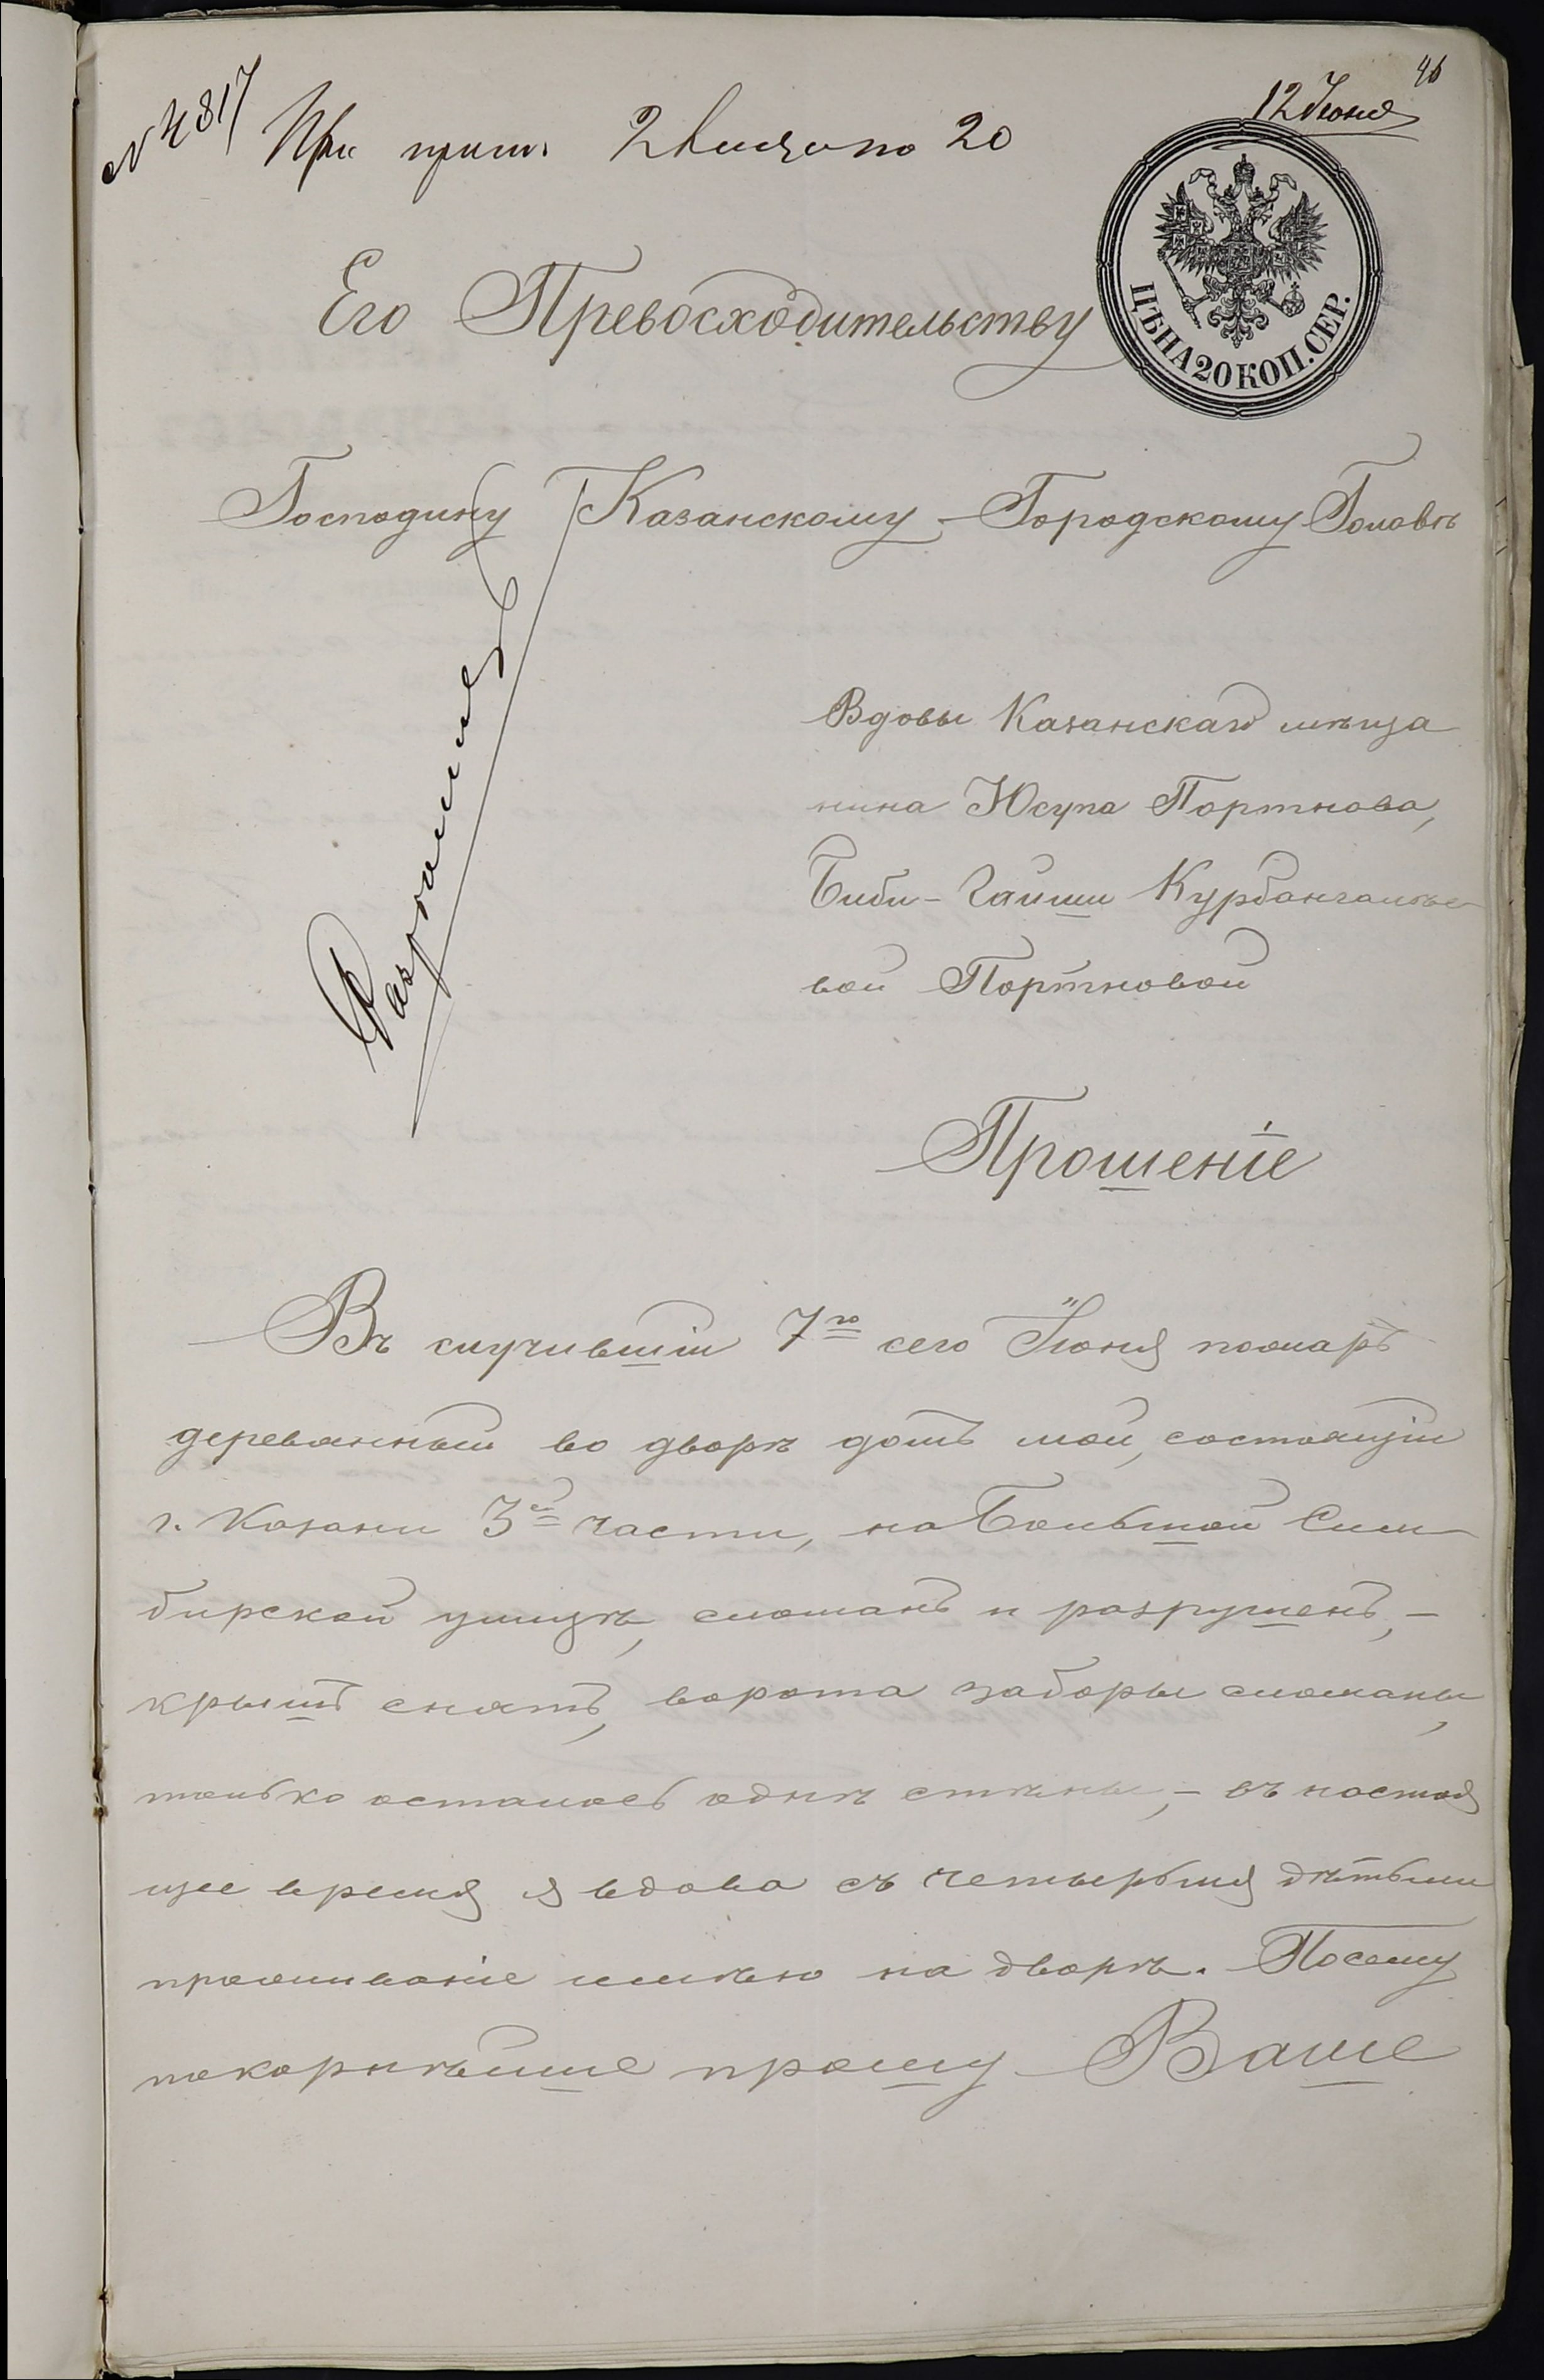 46
12 Июня
№ 4817
При прил. 2 листа по 20
ЦѢНА 20 КОП. СЕР.
Его Превосходительству
Господину Казанскому Городскому Головѣ
Вдовы Казанскаго мѣща
нина Юсупа Портнова,
Биби-Гайши Курбангалѣе
вой Портновой
Прошеніе
Въ случившій 7го сего Іюня пожаръ
деревянный во дворѣ домъ мой, состоящій
г. Казани 3й части, на Большой Сим
бирской улицѣ, сломанъ и разрушенъ, –
крышъ снятъ, ворота заборы сломаны,
только осталось однѣ стѣны, – въ настоя
щее время я вдова съ четырьмя дѣтьми
проживаніе имѣю на дворѣ. Посему
покорнѣйше прошу Ваше